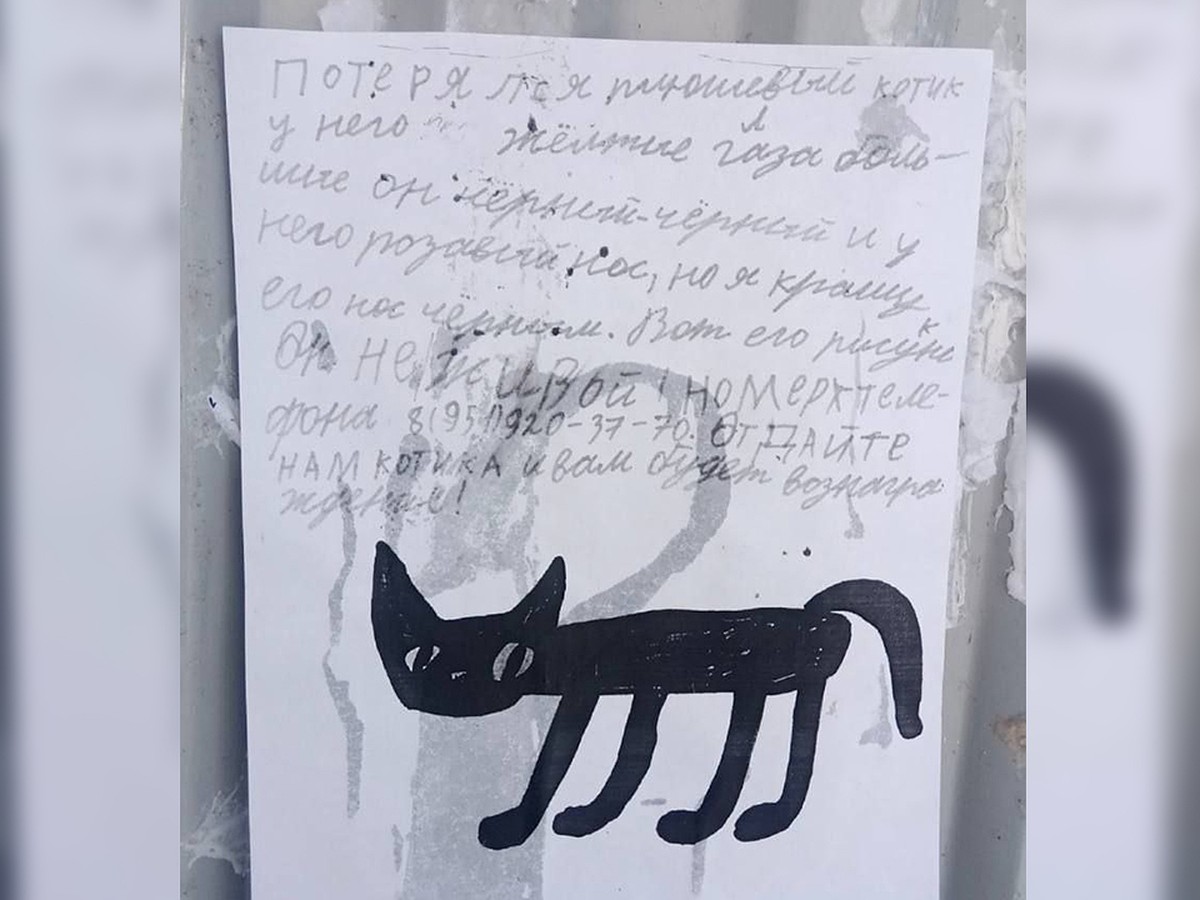 Потерялся плюшевый котик
у него жёлтые глаза боль-
шие он чернный-чёрный и у
него розавый нос, но я крашу
его нос чёрным. Вот его рисунк
Он не живой! номерктеле-
фона 8(951)920-37-70. ОТДАЙТЕ
НАМ КОТИКА и вам будет вознагра
ждение!